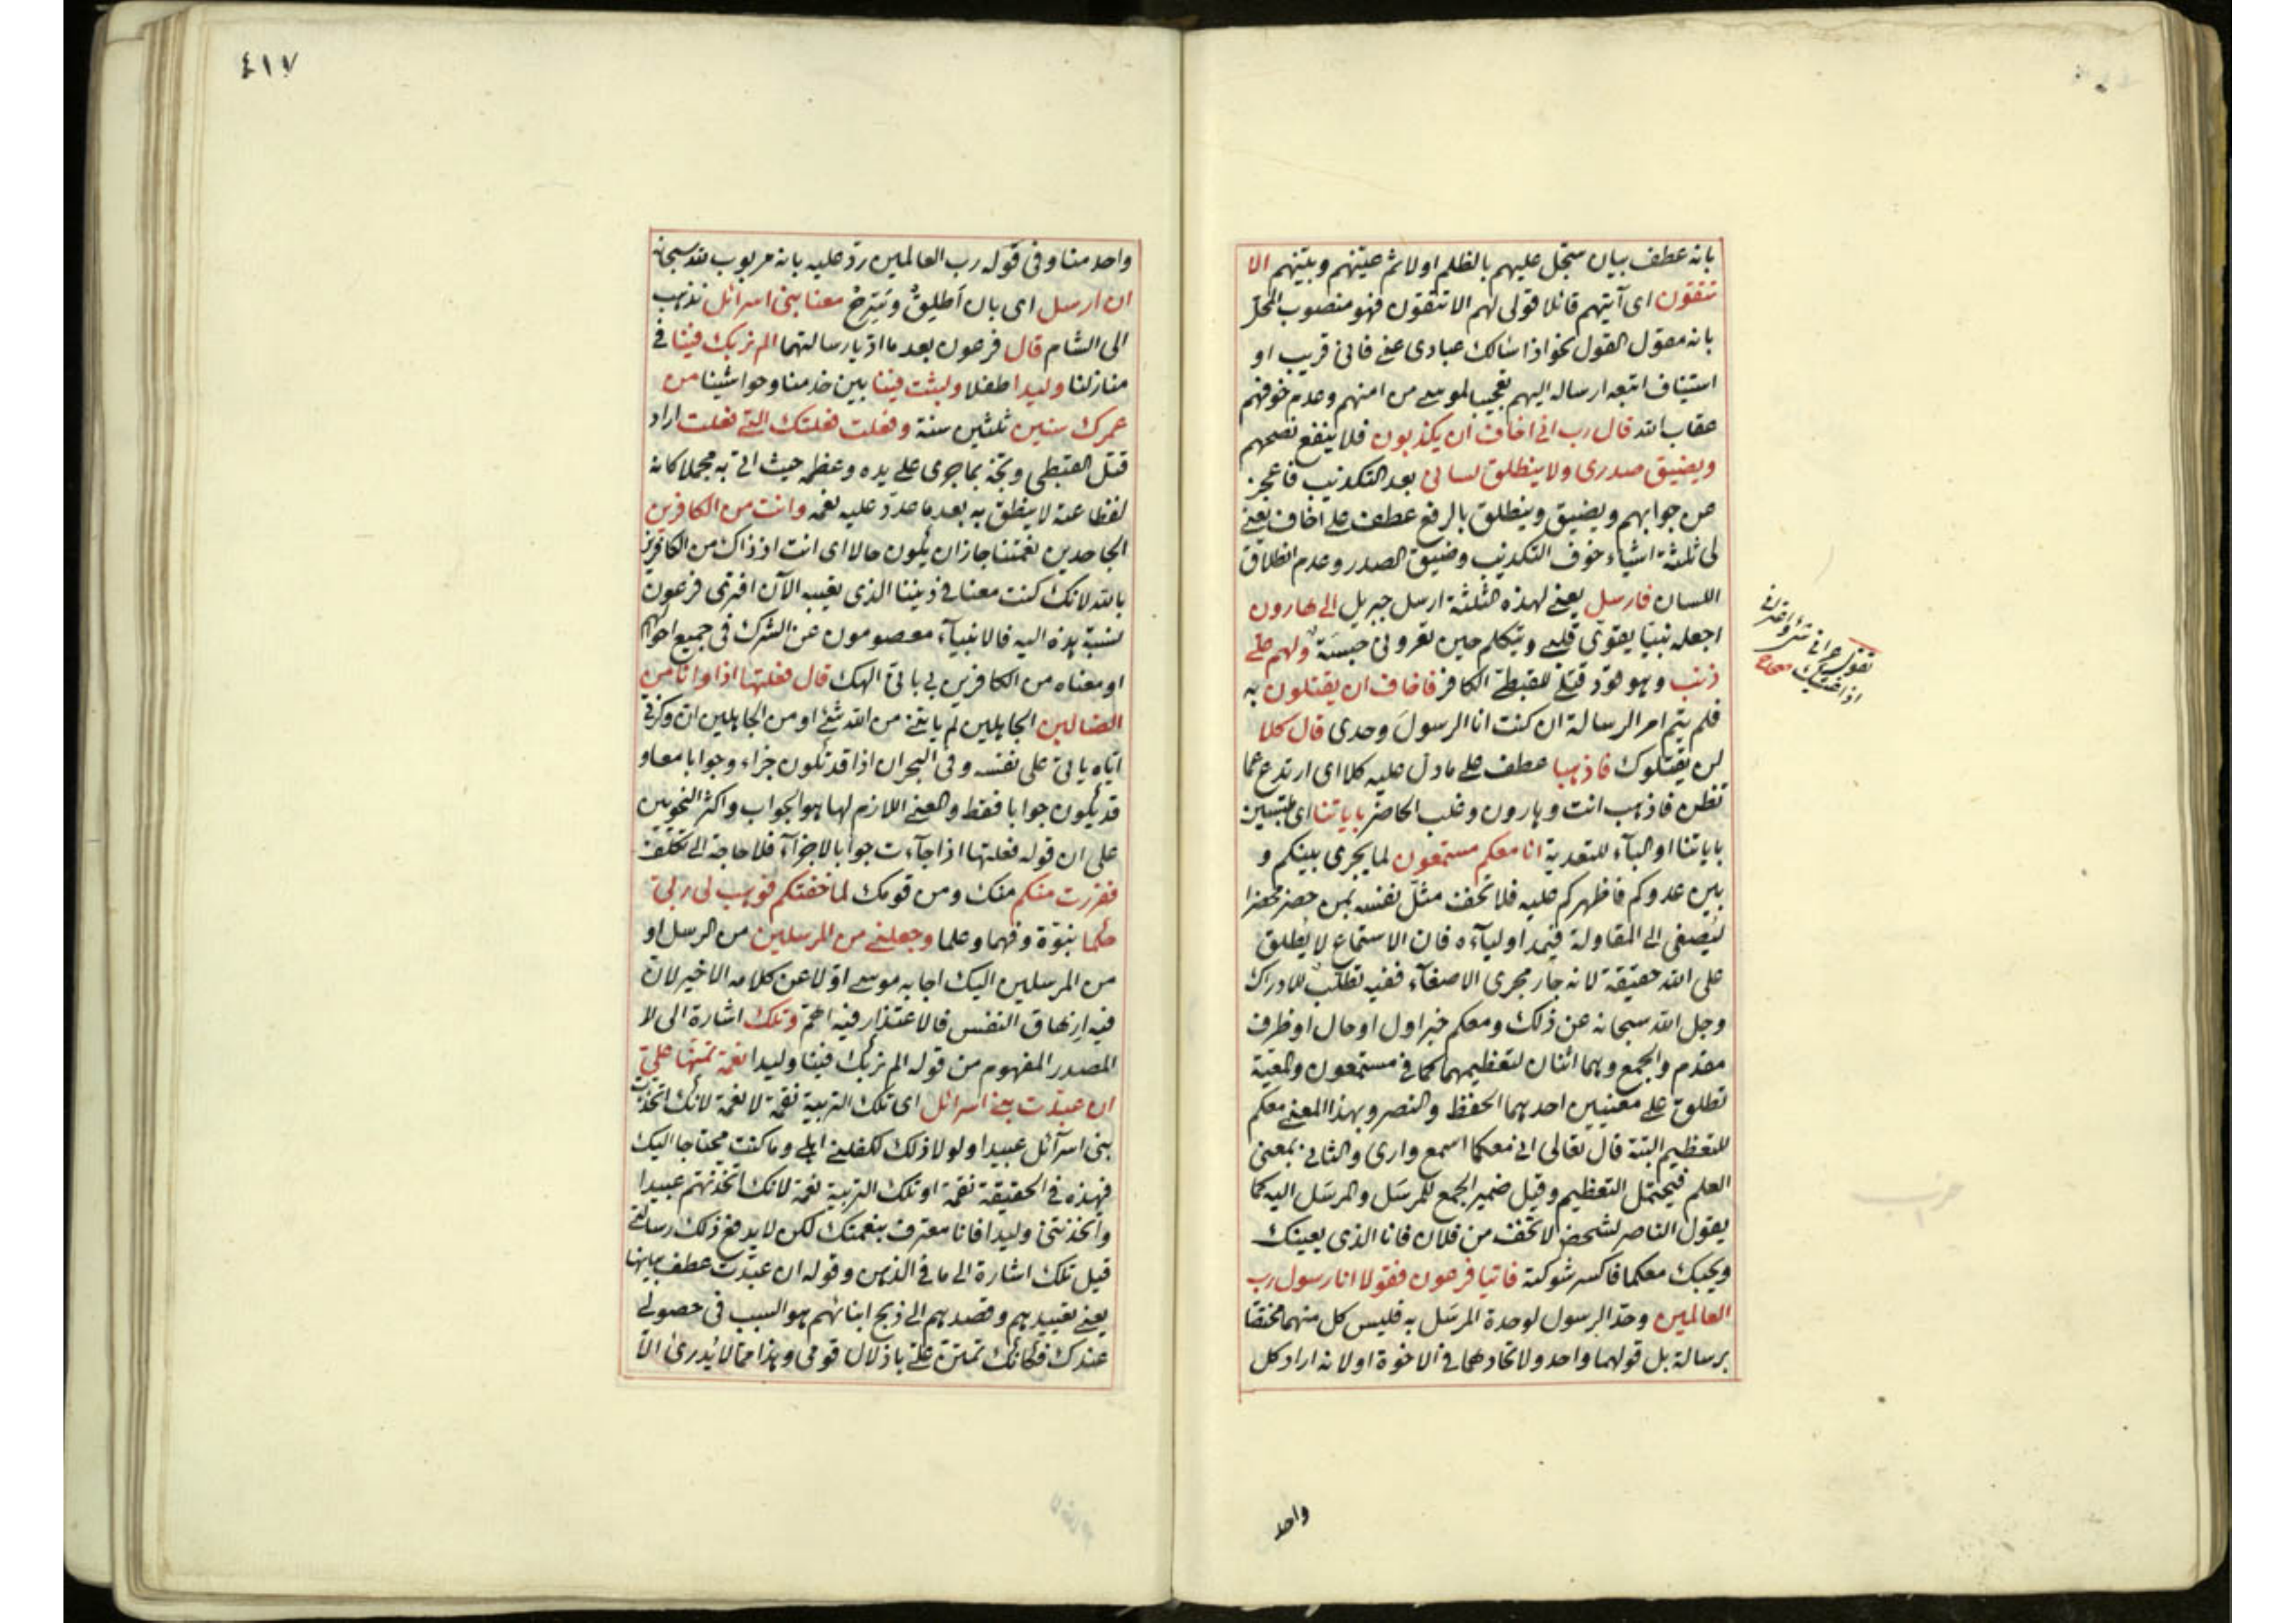 بانه عطف بيان سجل عليهم بالظلم اولا ثم عينهم وبينهم الا
تتقون اى آيتهم قائلا قولى لهم الا تتقون فهو منصوب المحل
بانه مقول القول نحو اذا سالك عبادى عنى فانى قريب او
استيناف اتبعه ارساله اليهم تعجيبا لموسى من امنهم وعدم خوفهم
عقاب الله قال رب انى اخاف ان يكذبون فلا ينفع نصحهم
ويضيق صدرى ولا ينطلق لسانى بعد التكذيب فاعجز
عن جوابهم ويضيق وينطلق بالرفع عطف على اخاف يعنى
لى ثلثة اشياء خوف التكذيب وضيق الصدر وعدم انطلاق
اللسان فارسل يعنى لهذه الثلثة ارسل جبريل الى هارون
اجعله نبيا يقوى قلبى ويتكلم حين تعرونى حبسة ولهم على
ذنب وهو قود قتلى للقبطى الكافر فاخاف ان يقتلون به
فلم يتم امر الرسالة ان كنت انا الرسول وحدى قال كلا
لن يقتلوك فاذهبا عطف على ما دل عليه كلا اى ارتدع عما
تظن فاذهب انت وهارون وغلب الحاضر باياتنا اى ملتبسين
باياتنا او الباء للتعدية انا معكم مستمعون لما يجرى بينكم و
بين عدوكم فاظهركم عليه فلا تخف مثل نفسه بمن حضر محضرا
ليصغى الى المقاولة فيمد اولياءه فان الاستماع لا يطلق
على الله حقيقة لانه جار مجرى الاصغاء ففيه تطلب للادراك
وجل الله سبحانه عن ذلك ومعكم خبر اول او حال او ظرف
مقدم والجمع وهما اثنان لتعظيمهما كما فى مستمعون والمعية
تطلق على معنيين احدهما الحفظ والنصر وبهذا المعنى معكم
للتعظيم البتة قال تعالى انى معكما اسمع وارى والثانى بمعنى
العلم فيحتمل التعظيم وقيل ضمير الجمع للمرسَل والمرسَل اليه كما
يقول الناصر لشخص لا تخف من فلان فانا الذى يعينك
ويحبك معكما فاكسر شوكته فاتيا فرعون فقولا انا رسول رب
العالمين وحد الرسول لوحدة المرسَل به فليس كل منهما مختصا
برسالة بل قولهما واحد ولاتحادهما فى الاخوة او لانه اراد كل
تقول عرانى واعترانى
اذا
صحاح
واحد
٤١٧
واحد منا وفى قوله رب العالمين رد عليه بانه مربوب لله سبحانه
ان ارسل اى بان اطلق وسرح معنا بنى اسرائل نذهب
الى الشام قال فرعون بعد ما اديا رسالتهما الم نربك فينا فى
منازلنا وليدا طفلا ولبثت فينا بين خدمنا وحواشينا من
عمرك سنين ثلثين سنة وفعلت فعلتك التى فعلت اراد
قتل القبطى وبخه بما جرى على يده وعظمه حيث اتى به مجملا كانه
لفظاعته لا ينطق به بعد ما عدد عليه نعمه وانت من الكافرين
الجاحدين نعمتنا جاز ان يكون حالا اى انت اذ ذاك من الكافرين
بالله لانك كنت معنا فى ديننا الذى تعيبه الآن افترى فرعون
لنسبة هذه اليه فالانبياء معصومون عن الشرك فى جميع احوالهم
او معناه من الكافرين بى باني الهك قال فعلتها اذا وانا من
الضالين الجاهلين لم ياتنى من الله شئ او من الجاهلين ان وكزتى
اياه ياتى على نفسه وفى البحر ان اذا قد تكون جزاء وجوابا معا و
قد يكون جوابا فقط والمعنى اللازم لها هو الجواب واكثر النحويين
على ان قوله فعلتها اذا جاءت جوابا لا جزاء فلا حاجة الى تكلف
ففررت منكم منك ومن قومك لما خفتكم فوهب لى ربى
حكما نبوة وفهما وعلما وجعلنى من المرسلين من الرسل او
من المرسلين اليك اجابه موسى اولا عن كلامه الاخير لان
فيه ازهاق النفس فالاعتذار فيه اهم وتلك اشارة الى الا
المصدر المفهوم من قوله الم نربك فينا وليدا نعمة تمنها على
ان عبدت بنى اسرائل اى تلك التربية نقمة لا نعمة لانك اتخذت
بنى اسرآئل عبيدا ولولا ذلك لكفلنى اهلى وما كنت محتاجا اليك
فهذه فى الحقيقة نقمة او تلك التربية نعمة لانك اتخذتهم عبيدا
واتخذتنى وليدا فانا معترف بنعمتك لكن لا يدفع ذلك رسالتى
قيل تلك اشارة الى ما فى الذهن وقوله ان عبدت عطف بيانها
يعنى تعبيدهم وقصدهم الى ذبح ابنائهم هو السبب فى حصولى
عندك فكانك تمتن على باذلال قومى وهذا مما لا يدرى الا